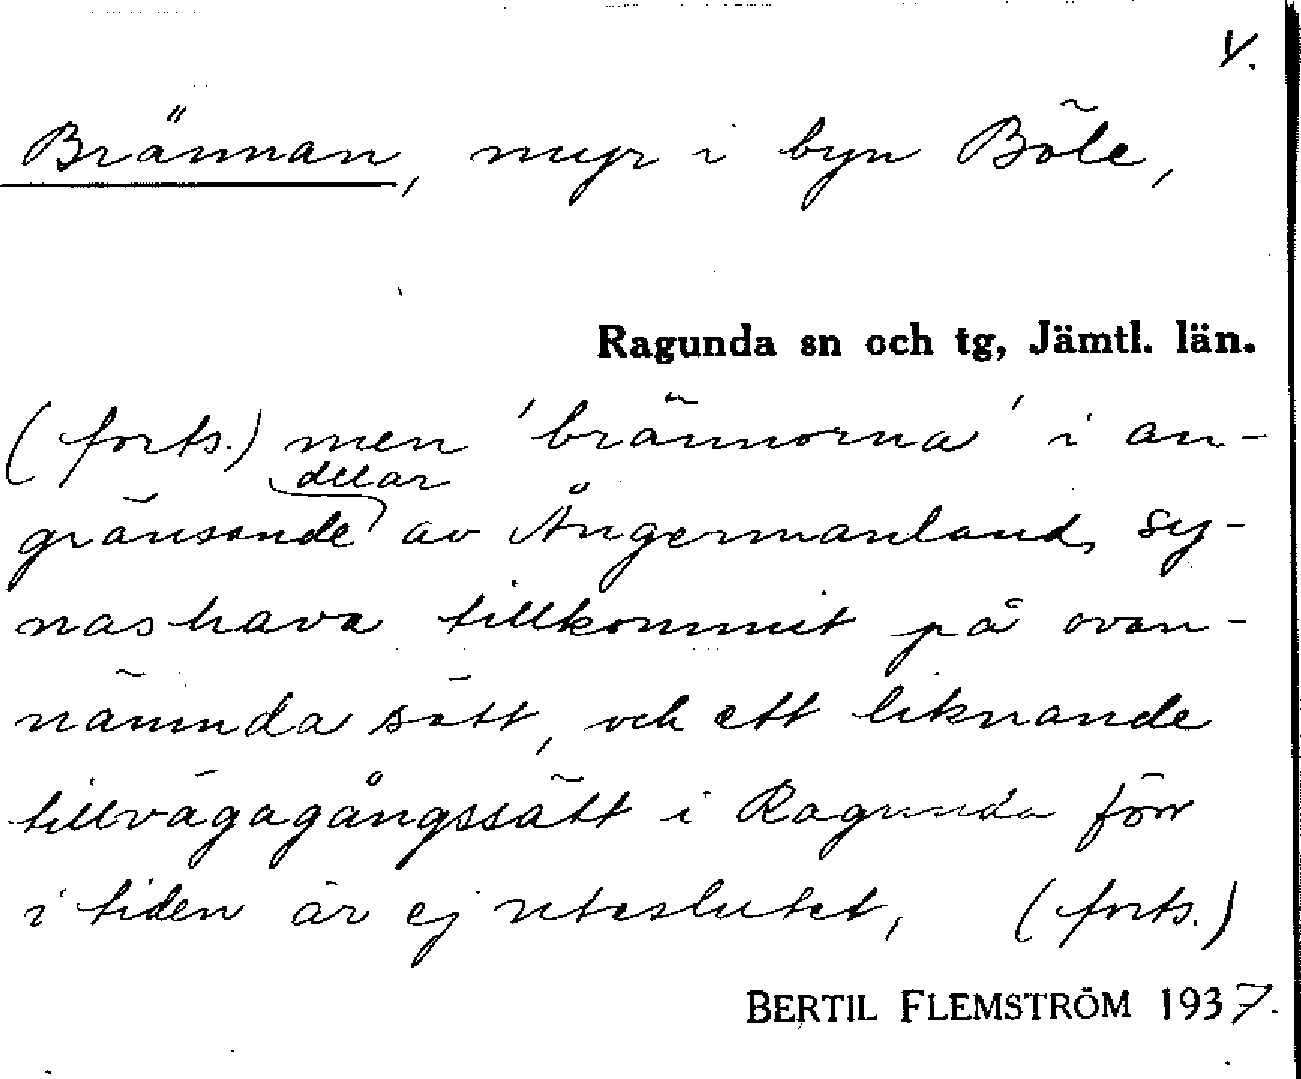 V.
Brännan, myr i byn Böle,
Ragunda sn och tg, Jämtl. län.
(forts.) men 'brännorna' i an-
delar
gränsande av Ångermanland, sy-
nas hava tillkommit på ovan-
nämnda sätt, och ett liknande
tillvägagångssätt i Ragunda förr
i tiden är ej uteslutet, (forts.)
BERTIL FLEMSTRÖM 1937.